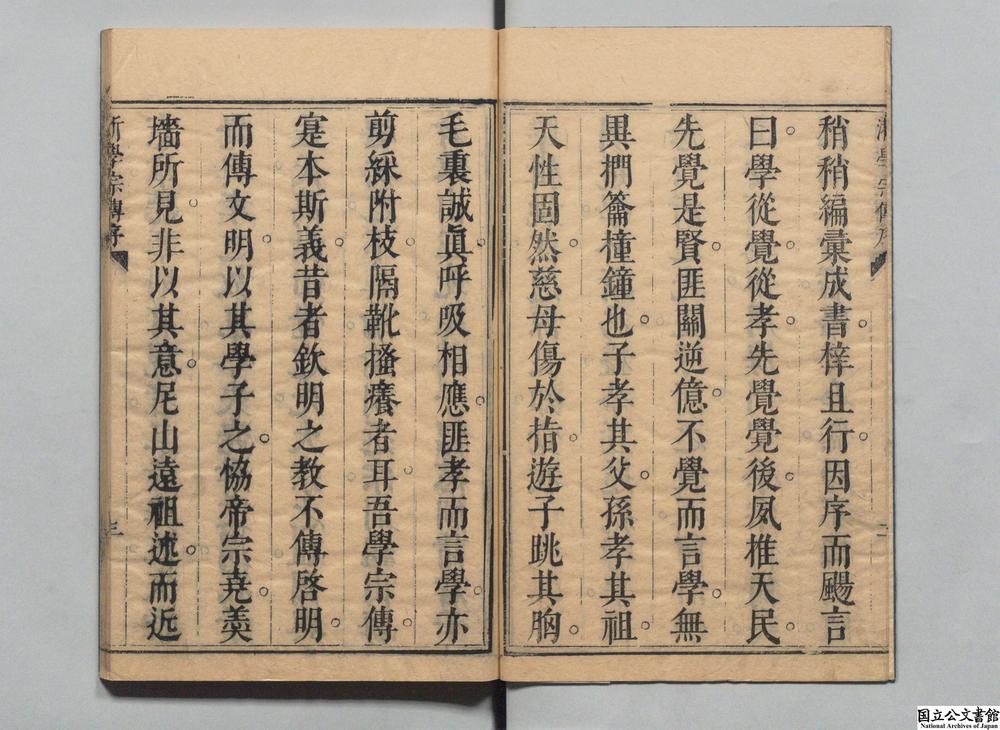 稍稍編彙成書梓且行因序而颺言
曰學從覺從孝先覺覺後夙推天民
先覺是賢匪關逆億不覺而言學無
異捫籥撞鐘也子孝其父孫孝其祖
天性固然慈母傷於指遊子跳其胸
毛裏誠眞呼吸相應匪孝而言學亦
剪綵附枝隔靴搔癢者耳吾學宗傳
寔本斯義昔者欽明之教不傳啓明
而傳文明以其學子之恊帝宗堯羮
墻所見非以其意尼山遠祖述而近
學宗傳序
三
国立公文書館
National Archives of Japan